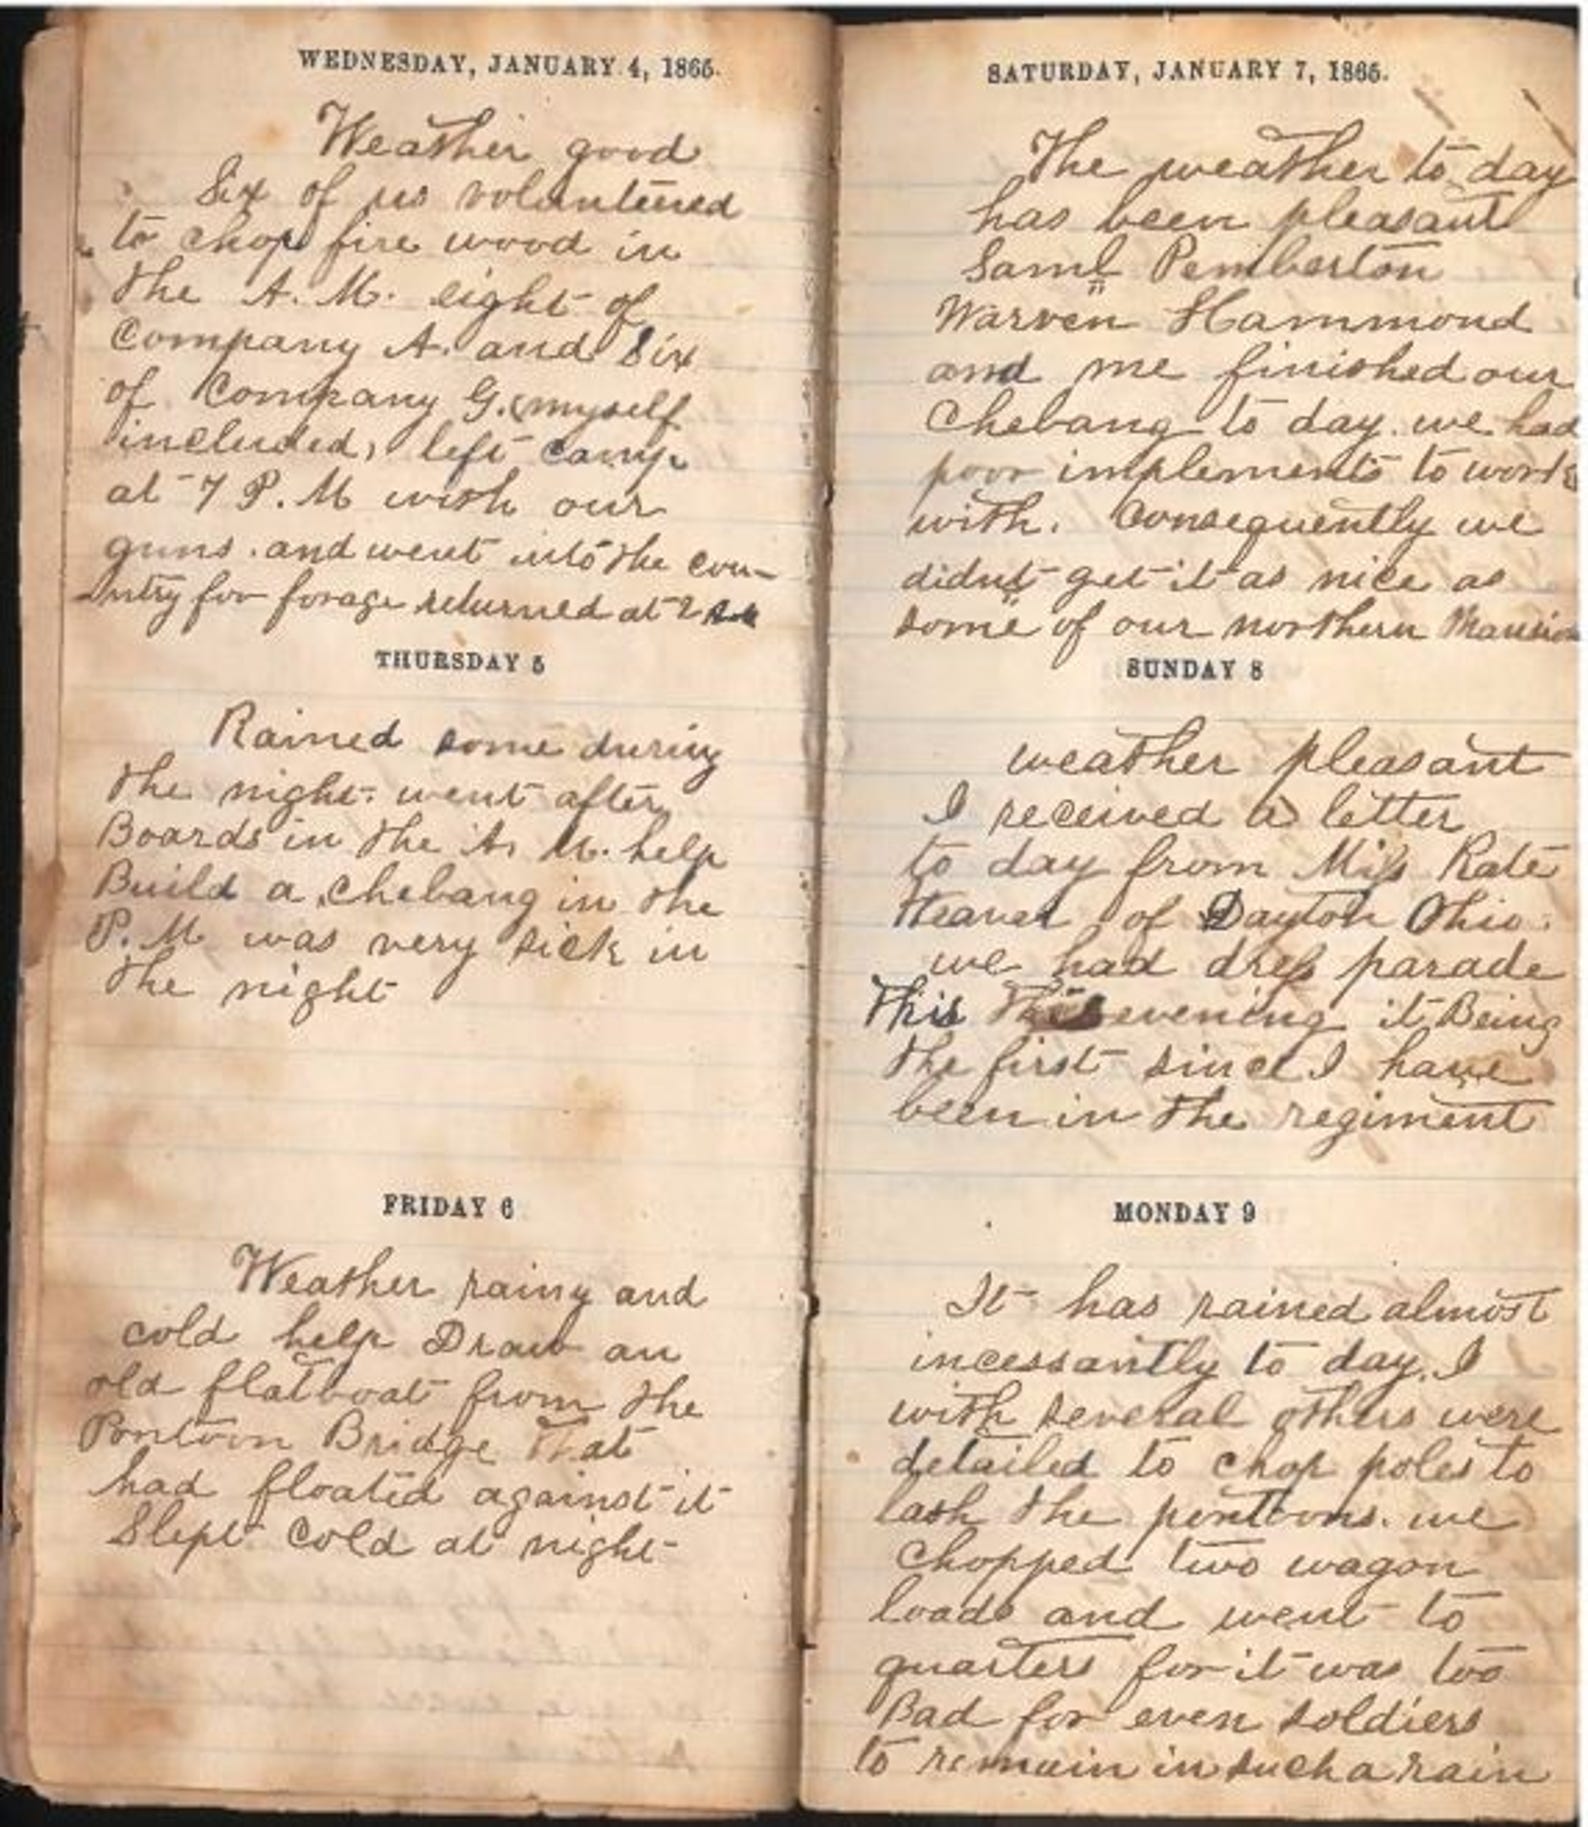 WEDNESDAY, JANUARY 4, 1865.
Weather good
Six of us volunteered
to chop fire wood in
the A. M. eight of
Company A. and Six
of Company G. (myself
included, left camp
at 7 P. M with our
guns. and went into the cou-
ntry for forage returned at 2
THURSDAY 5
Rained some during
the night. went after
Boards in the A. M. help
Build a chebang in the
P. M was very sick in
the night
FRIDAY 6
Weather rainy and
cold help Draw an
old flatboat from the
Pontoon Bridge that
had floated against it
Slept cold at night
SATURDAY, JANUARY 7, 1865.
The weather to day
has been pleasant
Saml Pemberton
Warren Hammond
and me finished our
Chebang to day. we had
poor implements to work
with. Consequently we
didnt get it as nice as
some of our northern Mansion
SUNDAY 8
weather pleasant
I received a letter
to day from Miss Kate
Heaver of Dayton Ohio.
we had dress parade
this this evening it Being
the first since I have
been in the regiment
MONDAY 9
It has rained almost
incessantly to day. I
with several others were
detailed to chop poles to
lash the pontoons. we
chopped two wagon
loads and went to
quarters for it was too
Bad for even soldiers
to remain in such a rain